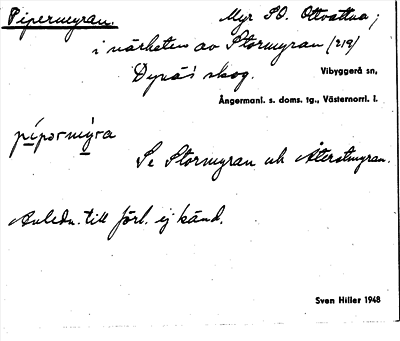 Pipermyran. Myr SO. Ottvattna;
i närheten av Stormyran (219)
Dynäs skog. Vibyggerå sn,
Ångermanl. s. doms. tg., Västernorrl. l.
pípərmy̆ra
Se Stormyran och Återstmyran.
Anledn. till förl. ej känd.
Sven Hiller 1948